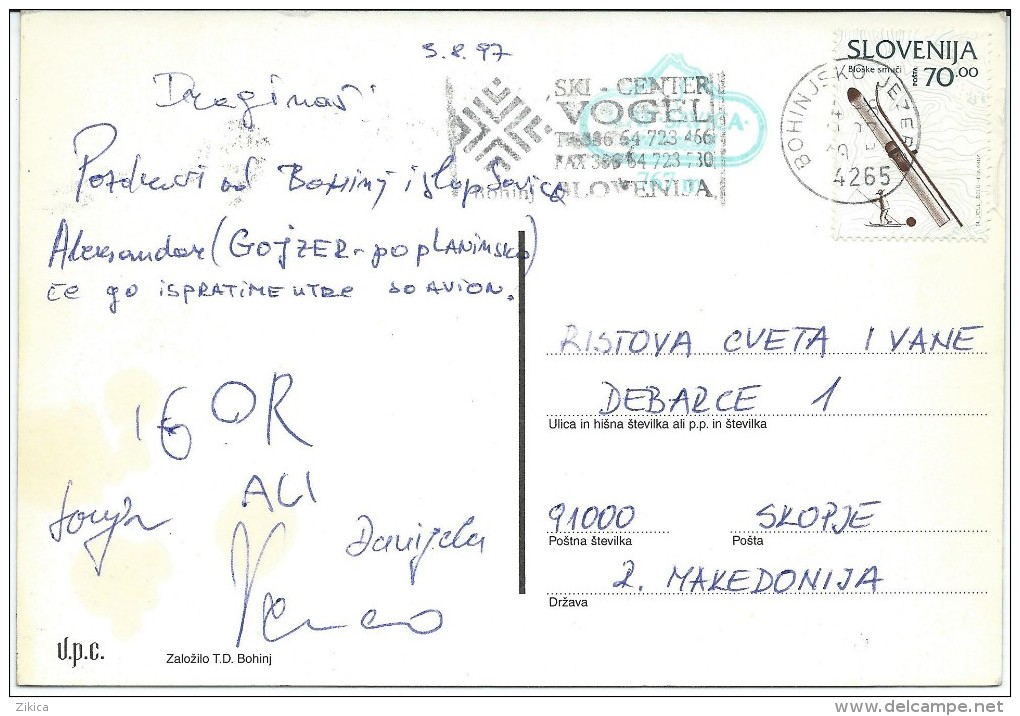 3.8.97
SLOVENIJA
Bloške smuči
70.00
SKI - CENTER
VOGEL
723 466
FAX 386 64 723 530
Bohinj SLOVENIJA
767 m
BOHINJSKO JEZERO
4265
Draginaši
Pozdravi od Bohinj i slap Savica
Aleksandar (GOJZER-po planinsko)
ќе go ISPRATIME UTRE SO AVION.
RISTOVA CVETA I VANE
DEBARCE 1
Ulica in hišna številka ali p.p. in številka
IGOR
ALI
Danijela
91000 SKOPJE
Poštna številka Pošta
R. MAKEDONIJA
Država
V.p.c.
Založilo T.D. Bohinj
Zikica
www.delcampe.net